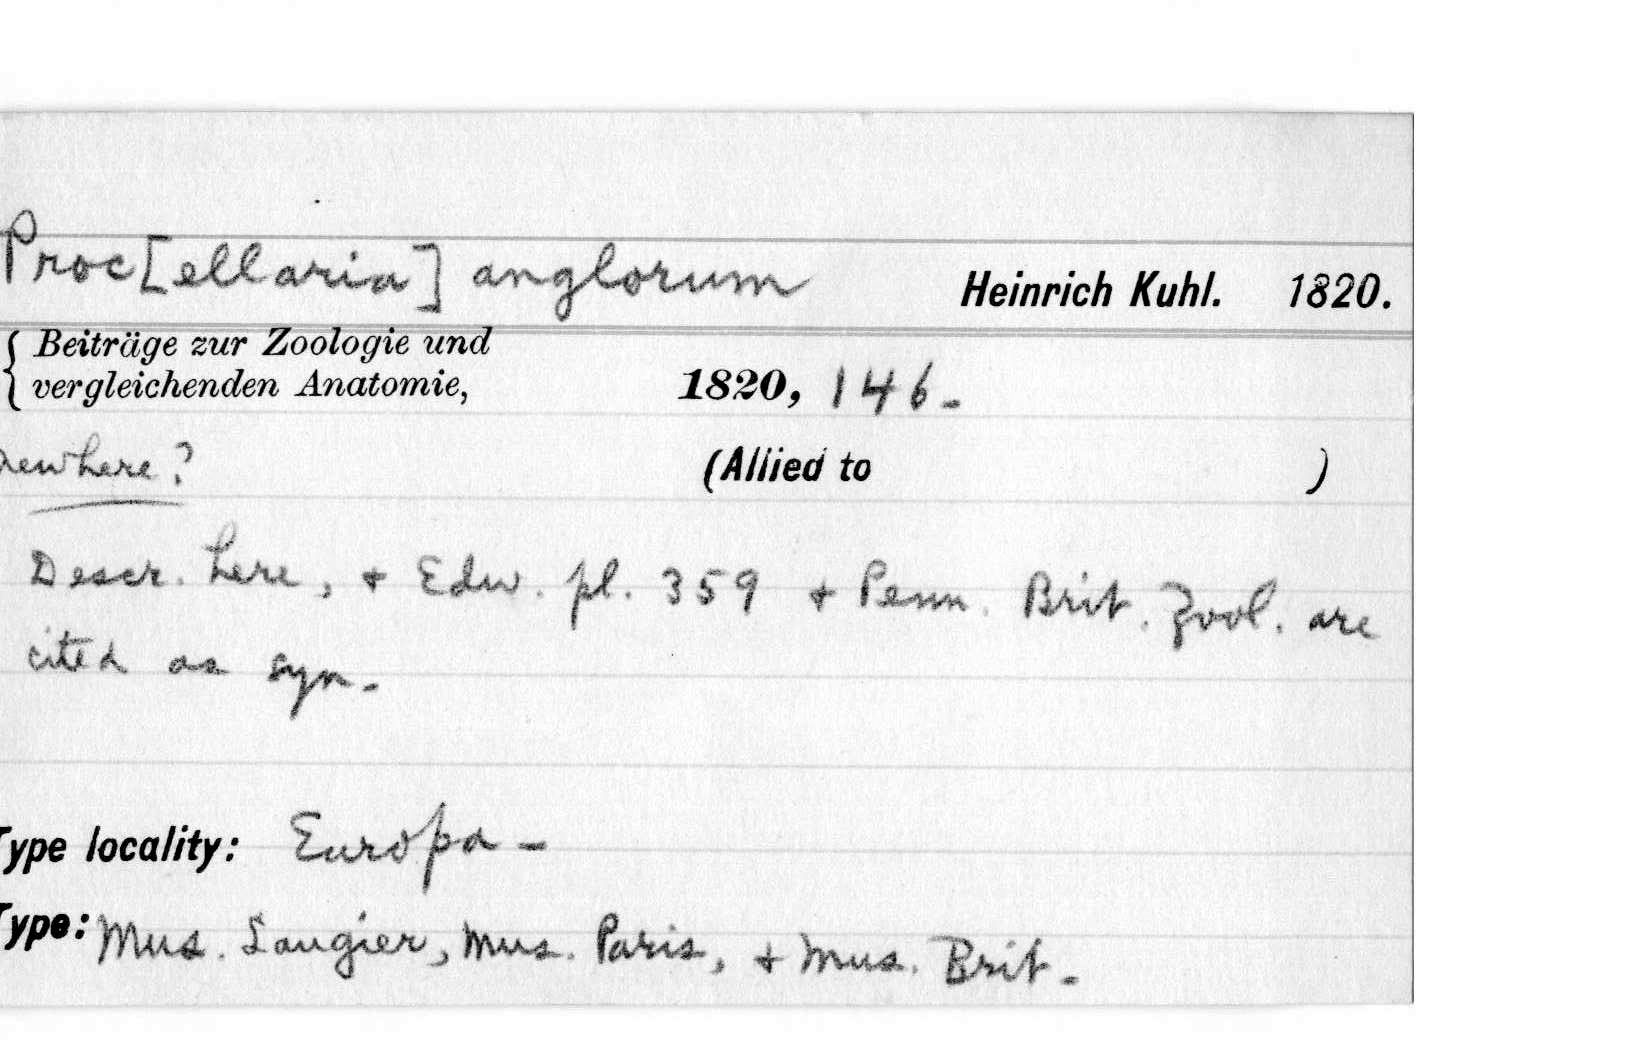 Proc[ellaria] anglorum Heinrich Kuhl. 1820.
{ Beiträge zur Zoologie und
vergleichenden Anatomie, 1820, 146.
(Allied to )
Descr. here, + Edw. pl. 359 + Penn. Brit. Zool. are
cited as syn.
Type locality: Europa -
Type: Mus. Laugier, Mus. Paris, + Mus. Brit.